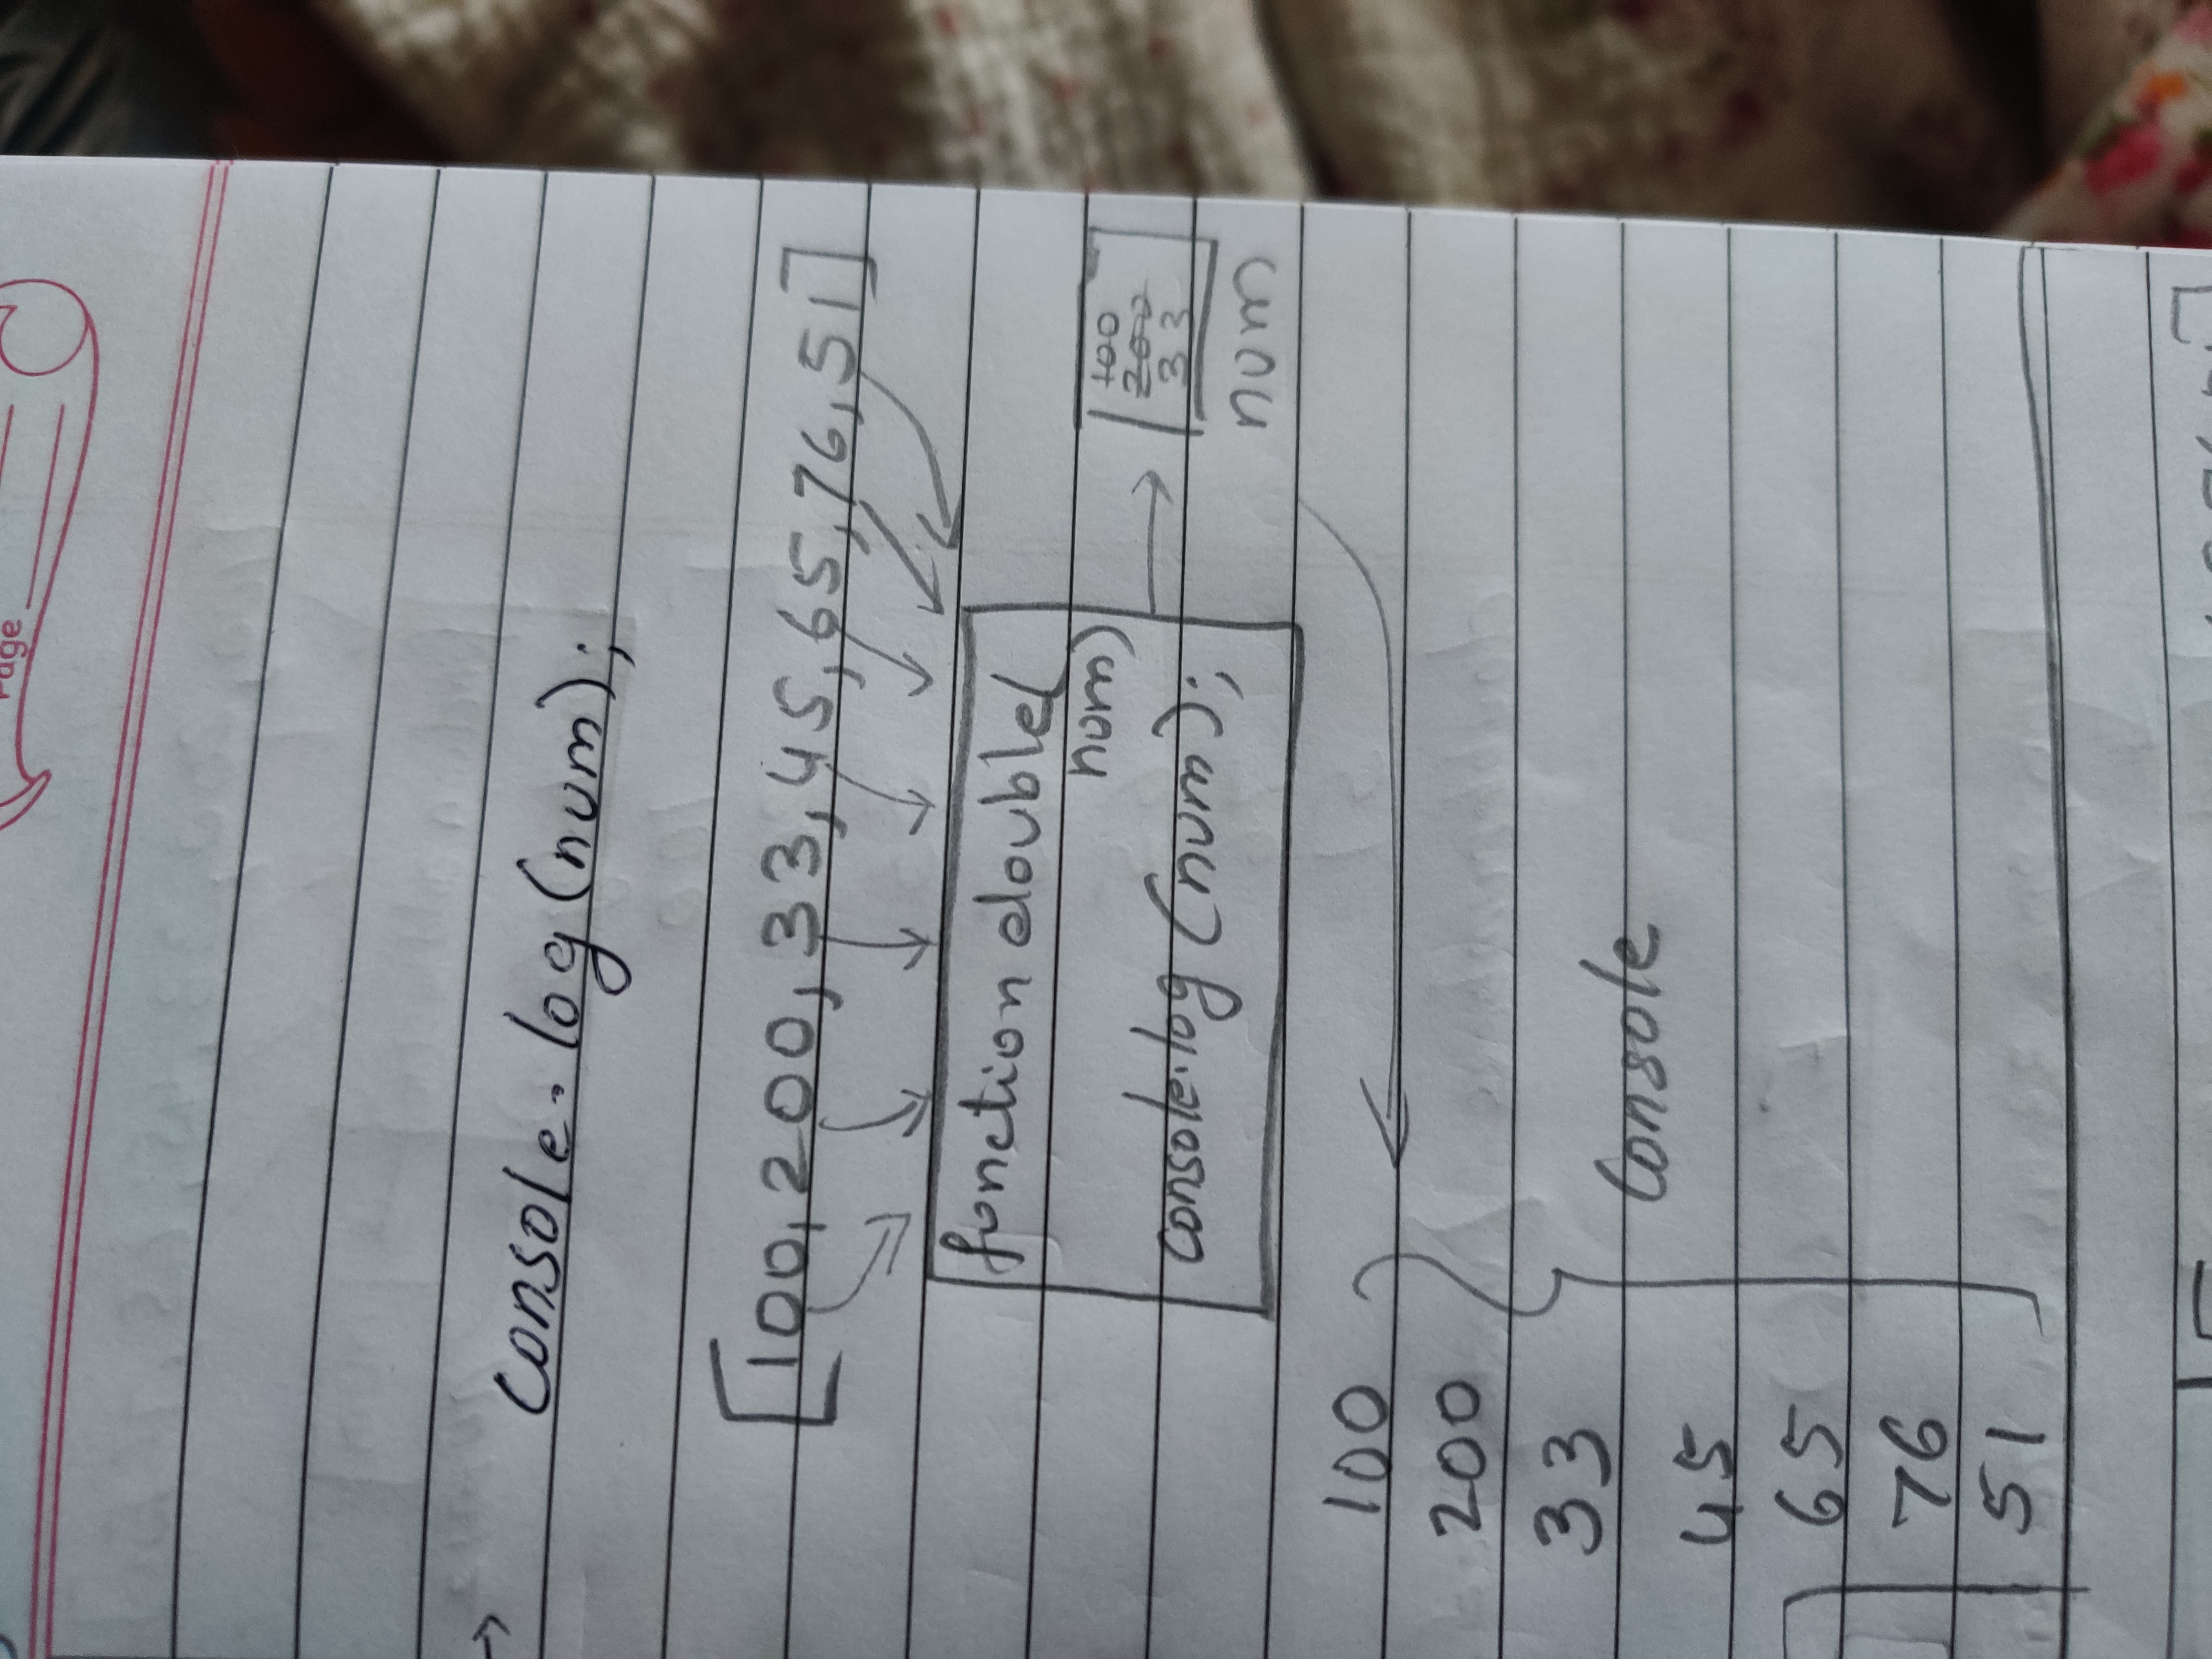 Page
→ console.log(num);
[100, 200, 33, 45, 65, 76, 51]
function double(
num)
console.log(num);
100
200
33
num
100
200
33
45
65
76
51
Console